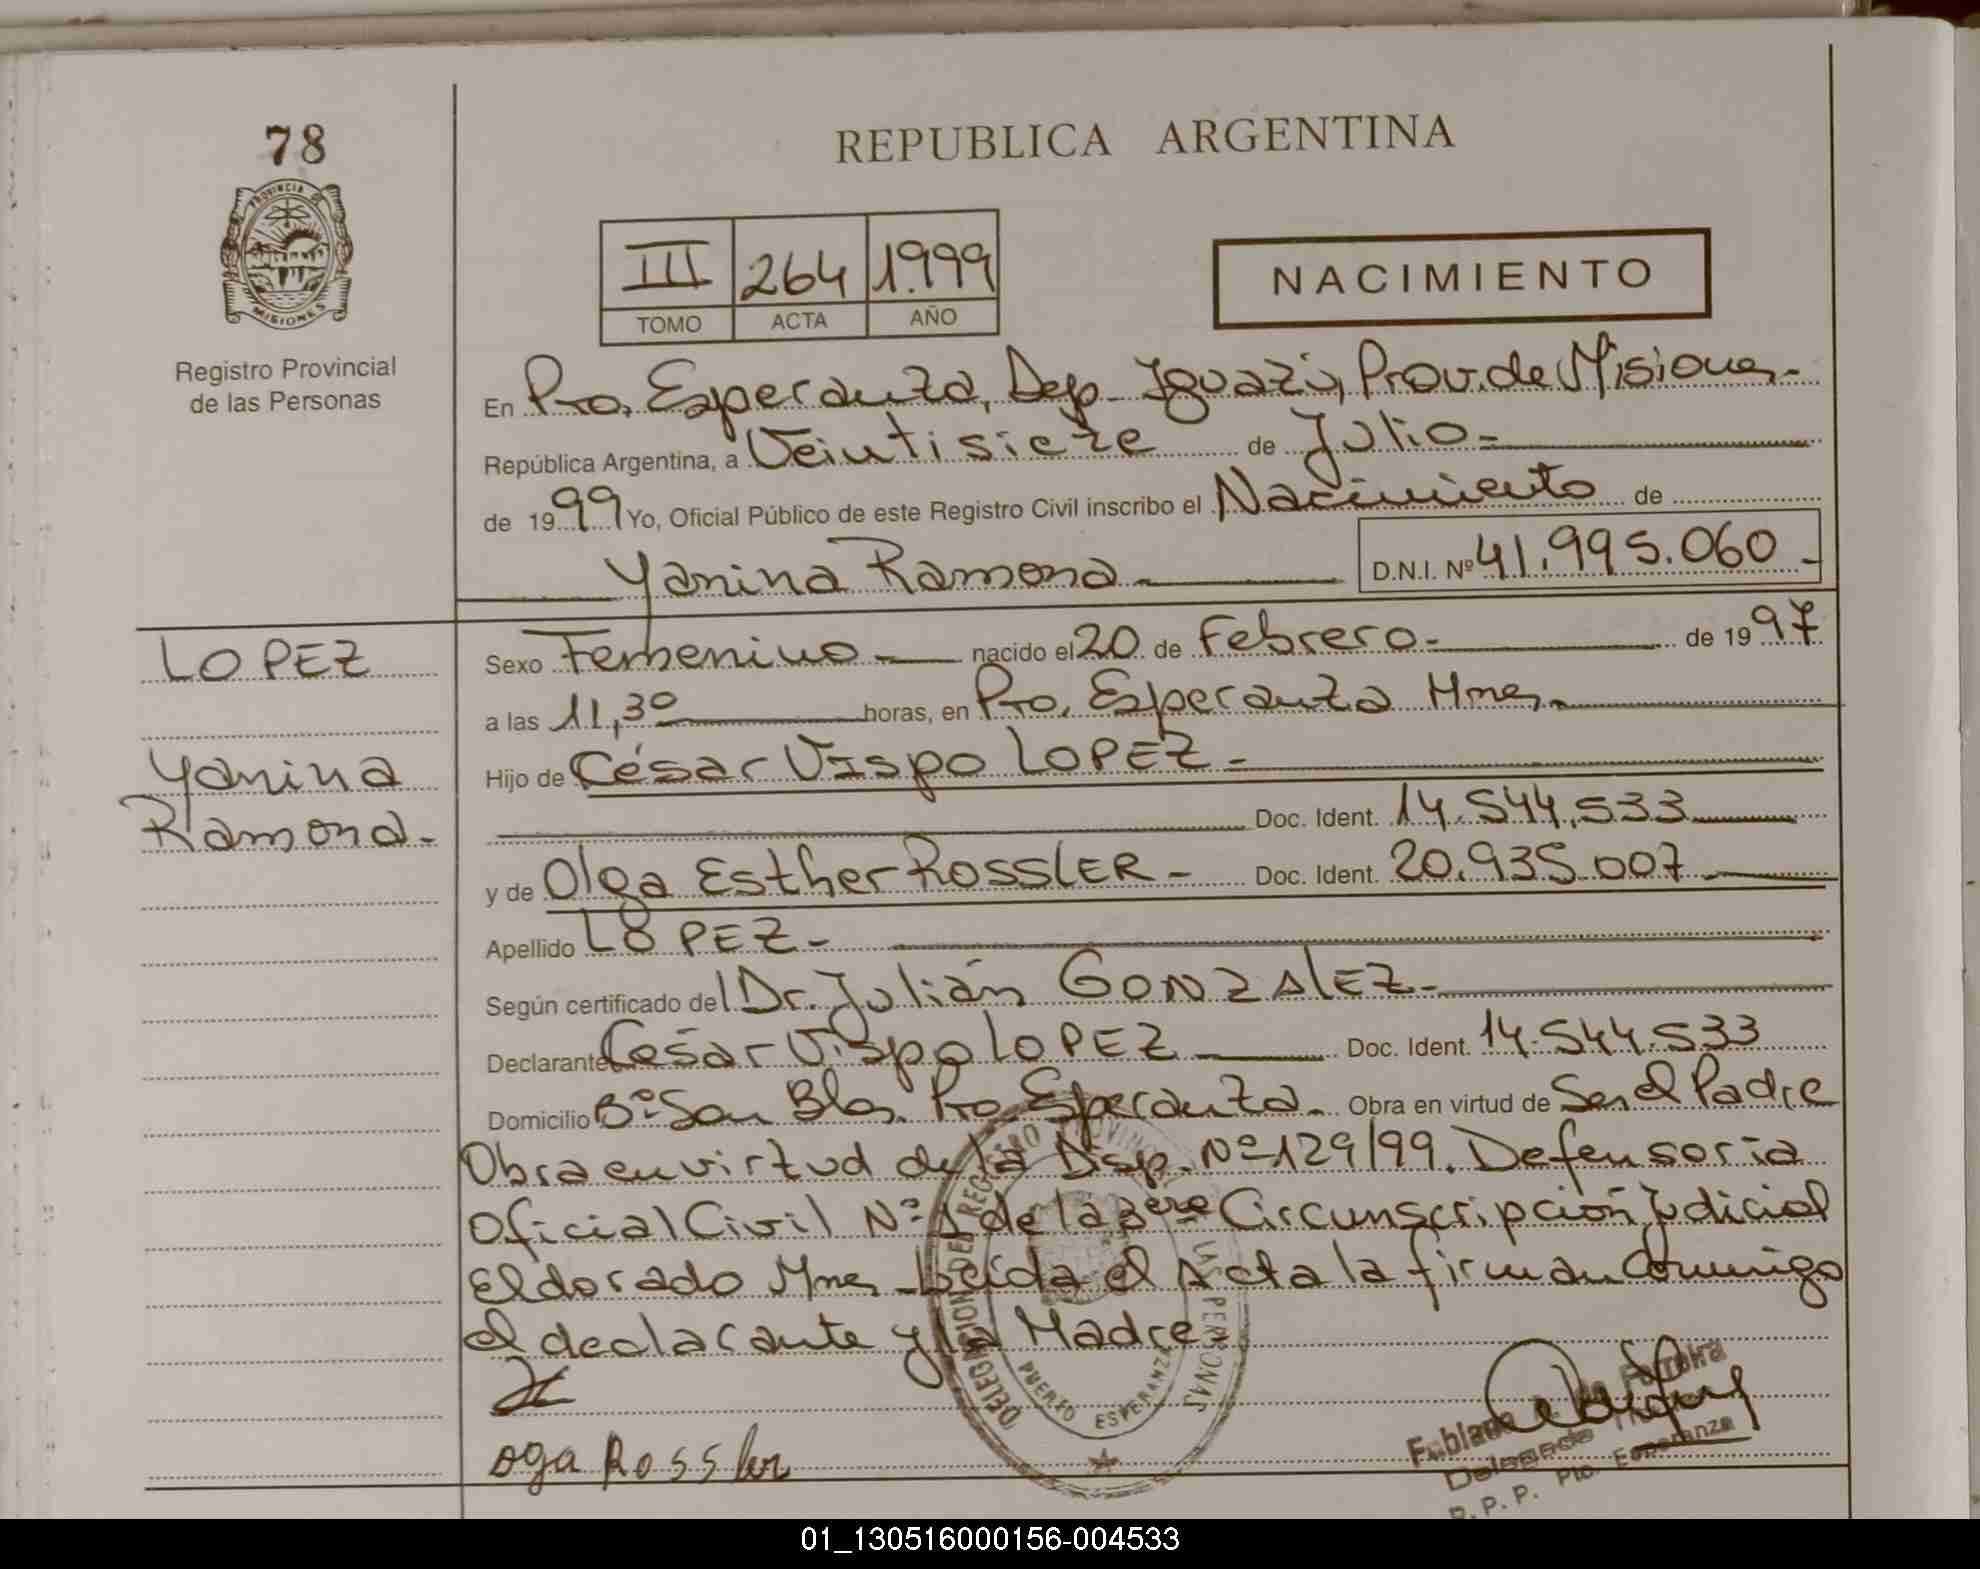 78
PROVINCIA DE
MISIONES
Registro Provincial
de las Personas
REPUBLICA ARGENTINA
III 264 1.999
TOMO ACTA AÑO
NACIMIENTO
En Pto. Esperanza, Dep. Iguazú, Prov. de Misiones.-
República Argentina, a Veintisiete de Julio.-
de 1999 Yo, Oficial Público de este Registro Civil inscribo el Nacimiento de
Yanina Ramona
D.N.I. Nº 41.995.060-
LOPEZ
Yanina
Ramona.-
Sexo Femenino- nacido el 20 de Febrero- de 1997
a las 11,30 horas, en Pto. Esperanza Mnes.
Hijo de César Vispo LOPEZ-
Doc. Ident. 14.544.533
y de Olga Esther ROSSLER- Doc. Ident. 20.935.007
Apellido LOPEZ-
Según certificado del Dr. Julián GONZALEZ-
Declarante César Vispo LOPEZ Doc. Ident. 14.544.533
Domicilio Bº San Blas. Pto Esperanza. Obra en virtud de Ser el Padre
Obra en virtud de la Disp. Nº 129/99. Defensoria
Oficial Civil Nº 1 de la 3era Circunscripción Judicial
Eldorado Mnes. Leída el Acta la firman Conmigo
el declarante y la Madre-
oga Rossler
DELEGACION DEL REGISTRO PROVINCIAL LAS PERSONAS
PUERTO ESPERANZA
Delegado
R.P.P. Pto. Esperanza
01_130516000156-004533